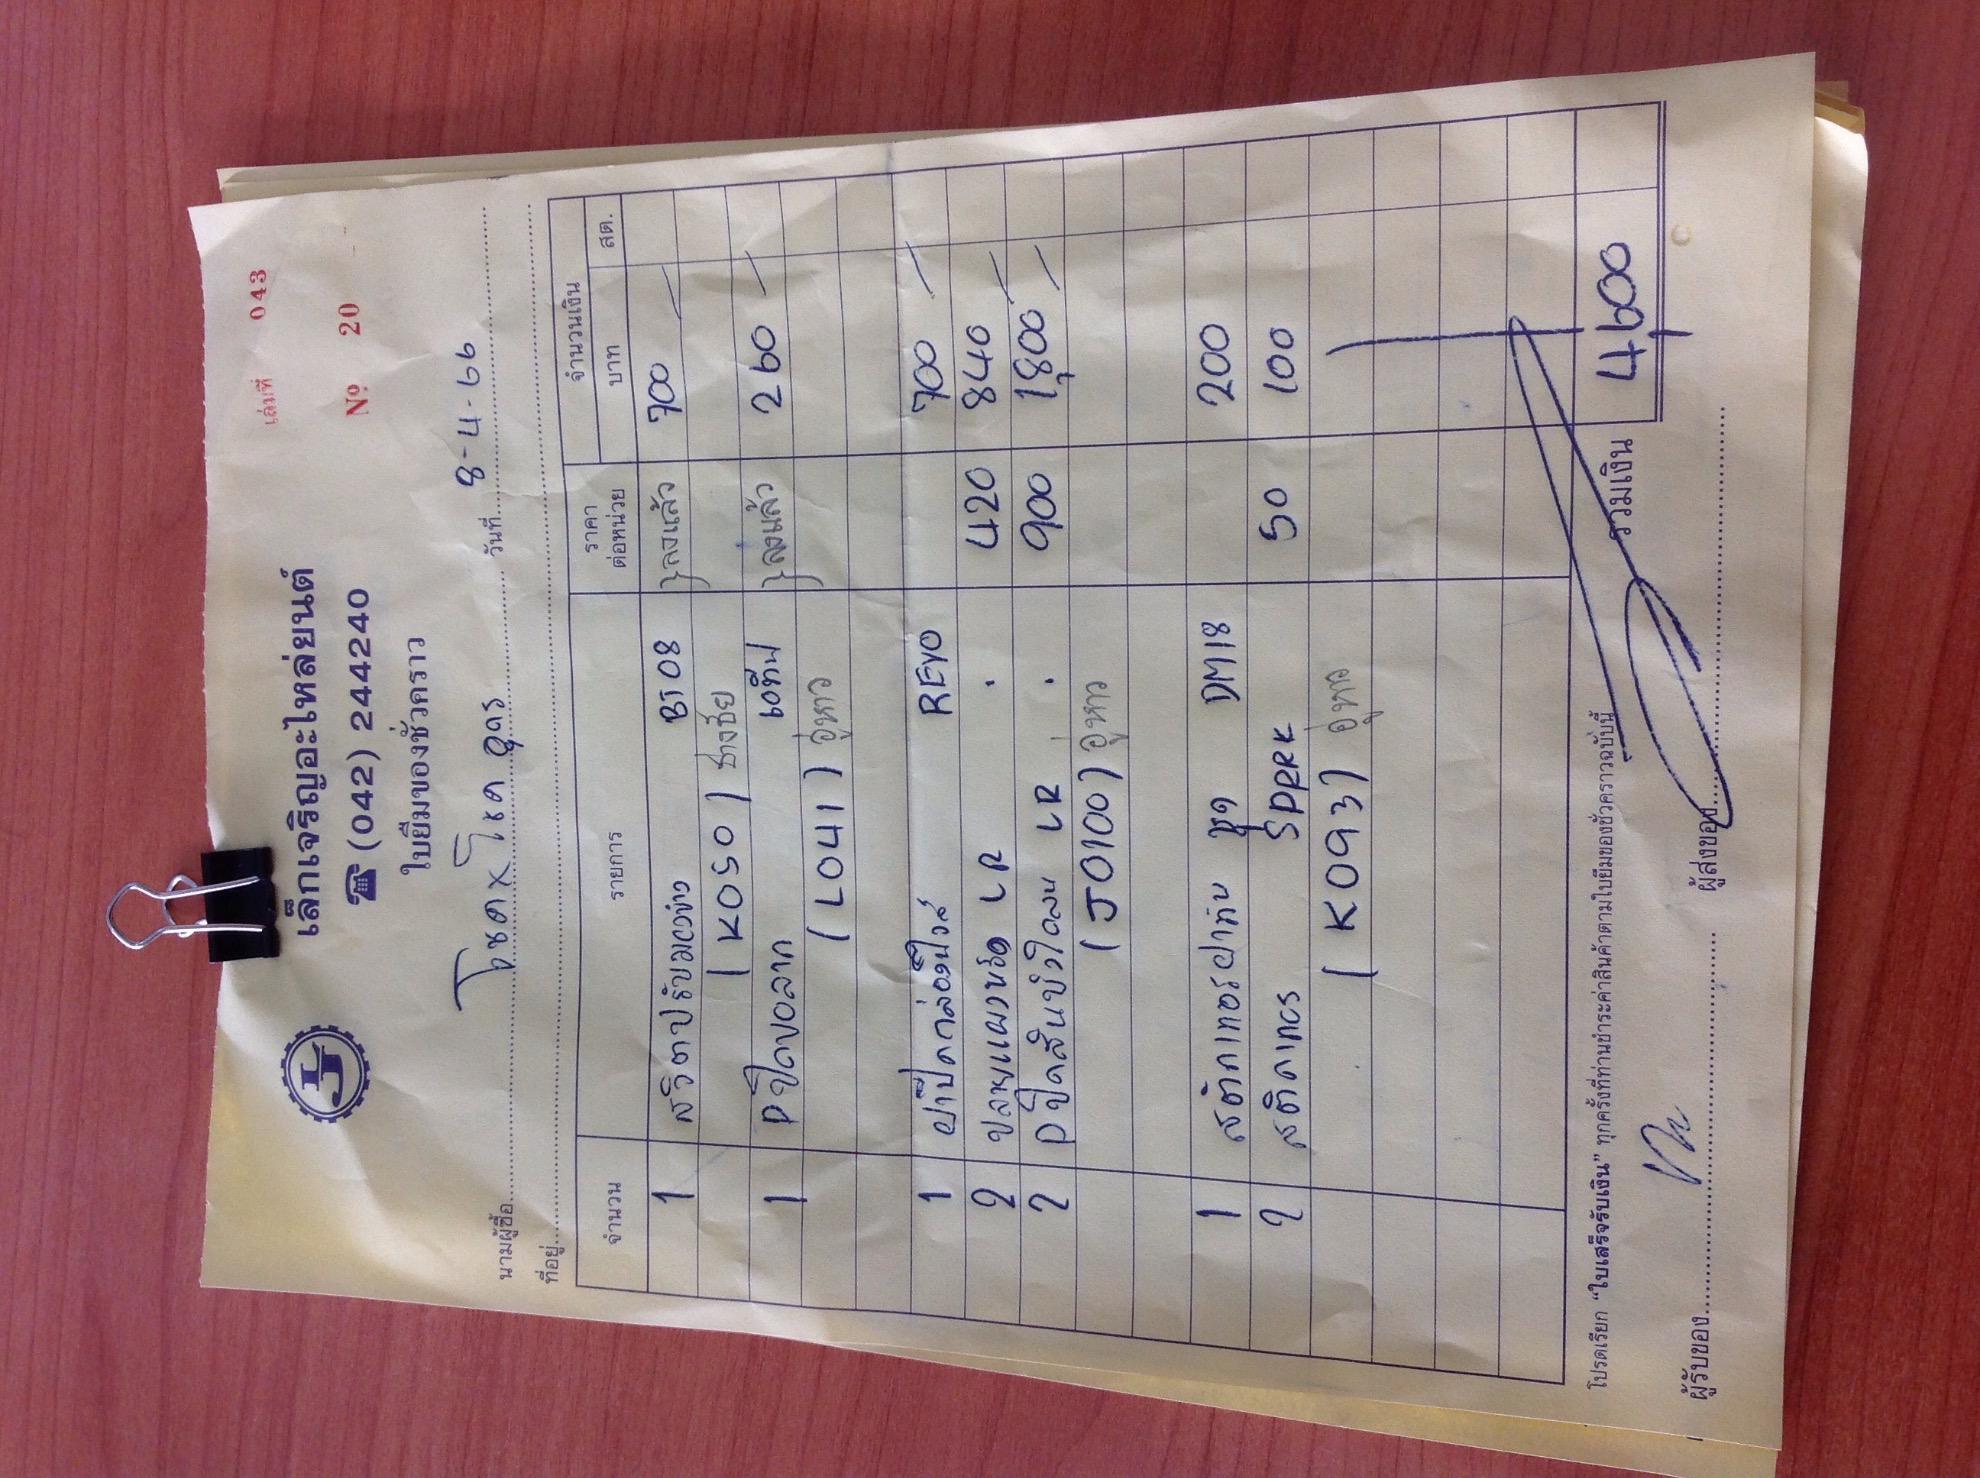 เล่มที่ 043
เล็กเจริญอะไหล่ยนต์
☎ (042) 244240
Nº 20
ใบยืมของชั่วคราว
นามผู้ซื้อ โชค x โชค อุดร วันที่ 8-4-66
ที่อยู่
จำนวน รายการ ราคาต่อหน่วย จำนวนเงิน
บาท สต.
1 สวิตปรับมองข้าง BT08 ลงแล้ว 700
(K050) ช่างชัย
1 Pปิดขอลาก ลงแล้ว 260
(L041) อู่หาว
1 ฝาปิดกล่องฟิวส์ REVO 700
2 LR . 420 840
2 LR . 900 1,800
(J0100) อู่หาว
1 สติกเกอร์ฝาท้าย ชุด DM18 200
2 สติกเกอร์ SPARK 50 100
(K093) อู่หาว
รวมเงิน 4600
โปรดเรียก “ใบเสร็จรับเงิน” ทุกครั้งที่ท่านชำระค่าสินค้าตามใบยืมของชั่วคราวฉบับนี้
ผู้รับของ ผู้ส่งของ